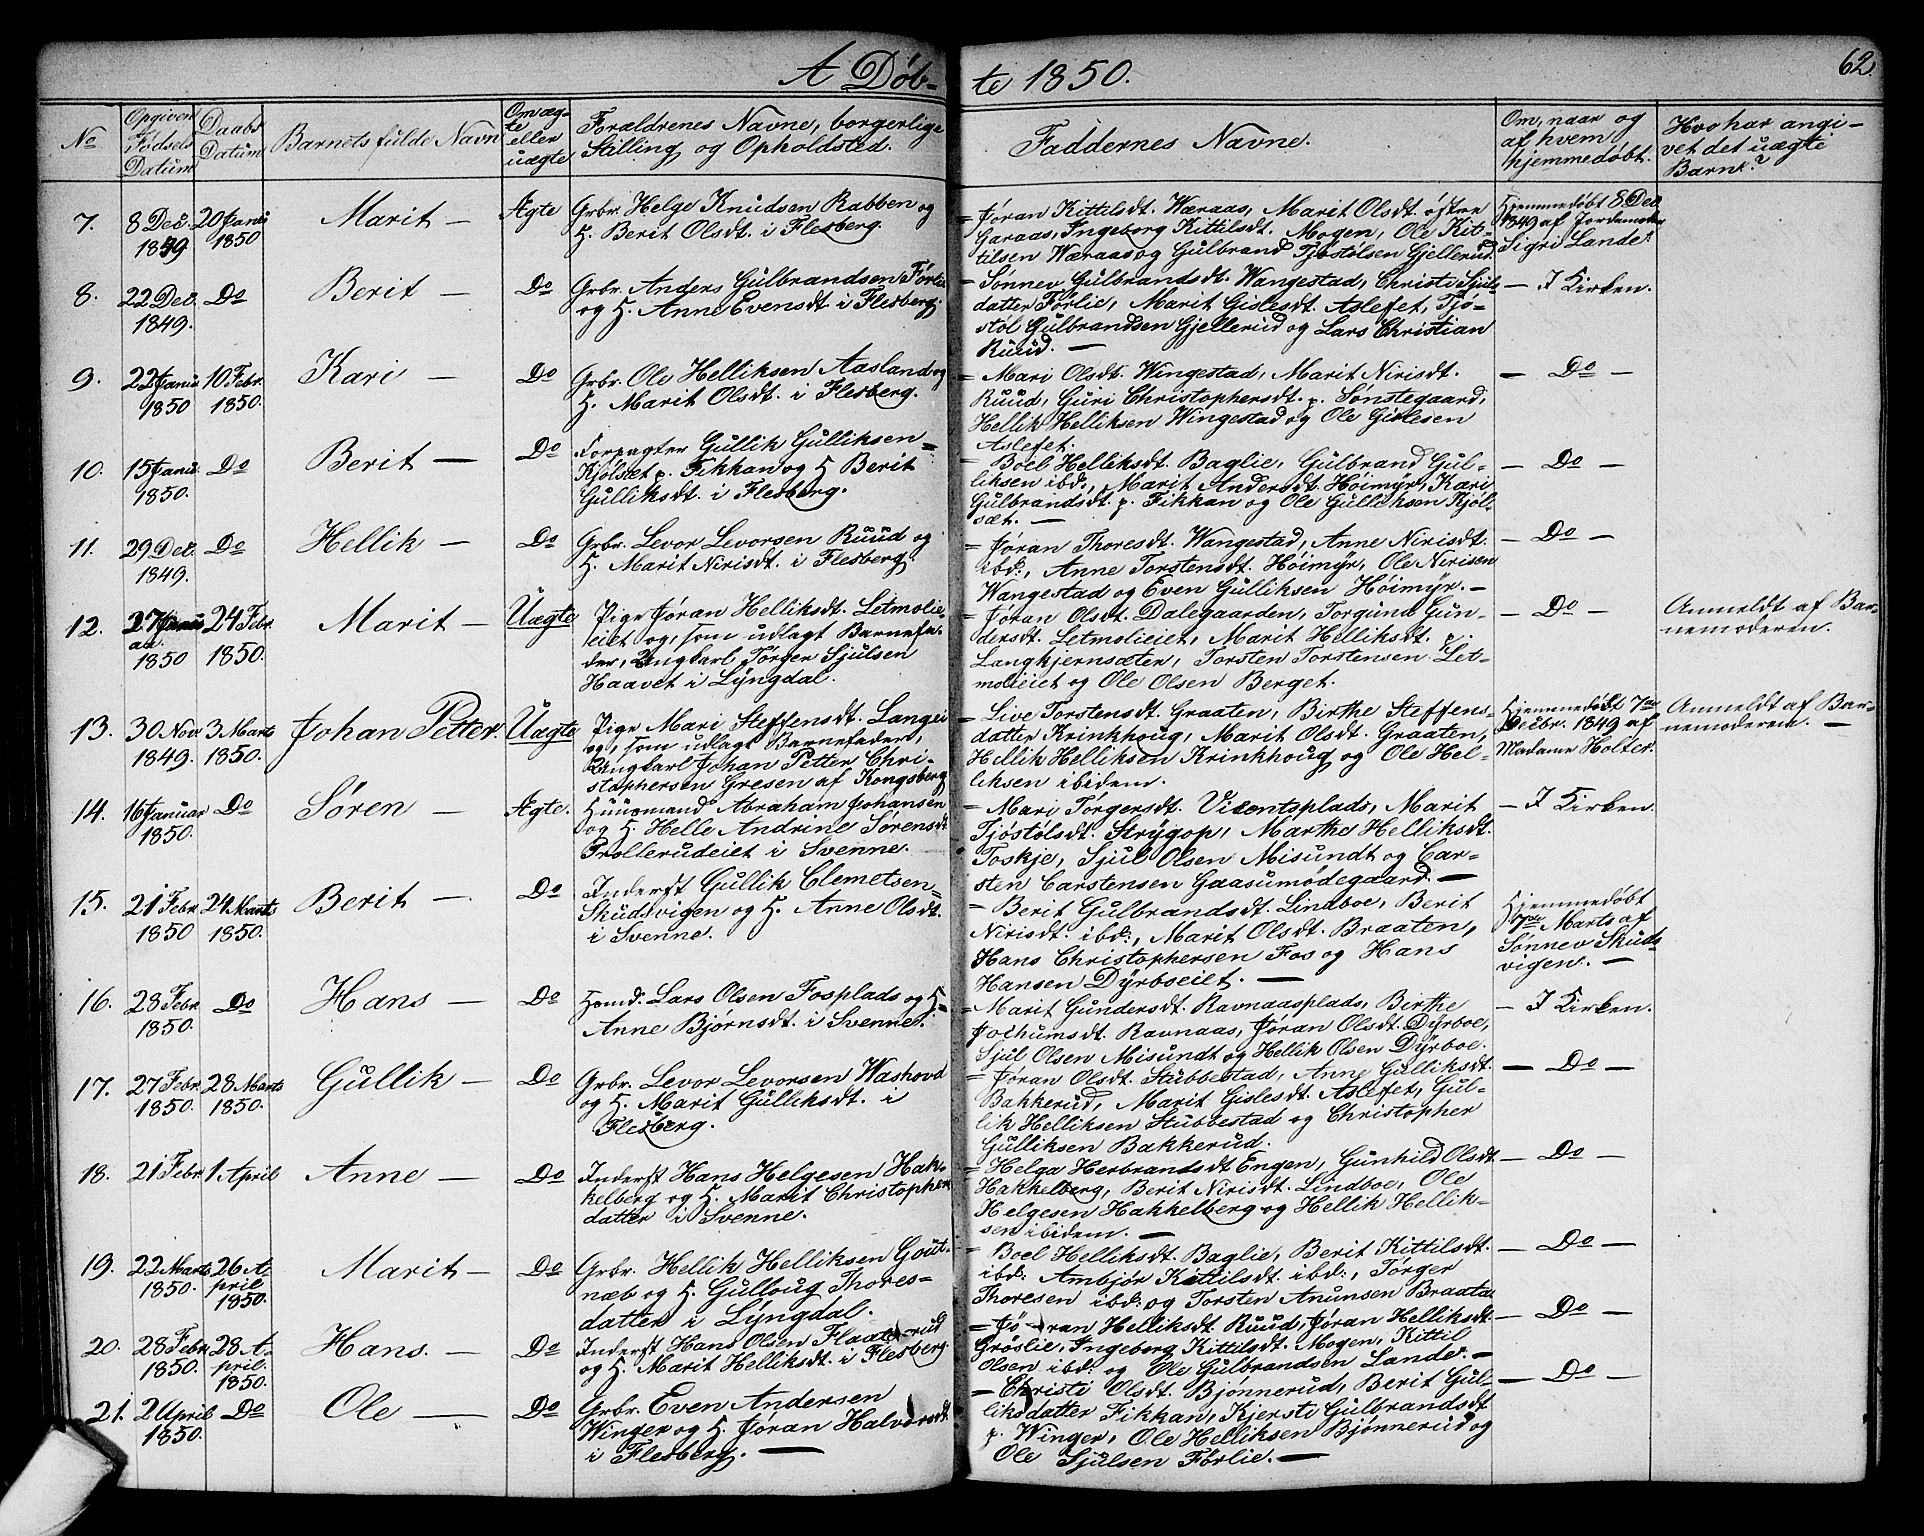 A Døb-
te 1850.
62.
No
Opgiven
Fødsels
Datum
Daabs
Datum
Barnets fulde Navn
Om æg-
te
eller
uægte
Forældrenes Navne, borgerlige
Stilling og Opholdsted.
Faddernes Navne.
Om, naar og
af hvem
hjemmedøbt.
Hvo har angi-
vet det uægte
Barn?
7.
8 Dec.
1849
20 Janu
1850
Marit —
Ægte
Grbr. Helge Knudsen Rabben og
H. Berit Olsdt. i Flesberg.
= Jøran Kittilsdt. Wæraas, Marit Olsdt. østre
Garaas, Ingeborg Kittilsdt. Mogen, Ole Kit-
tilsen Wæraas og Gulbrand Tjøstølsen Gjellerud.
Hjemmedøbt 8 Dec.
1849 af Jordemoder
Sigri Lande.
8.
22 Dec.
1849.
Do
Berit —
Do
Grbr. Anders Gulbrandsen Førlie
og H. Anne Evensdt. i Flesberg.
= Sønnev Gulbrandsdt. Wangestad, Christi Sjuls-
datter Førlie, Marit Gislesdt. Aslefet, Tjø-
støl Gulbrandsen Gjellerud og Lars Christian
Ruud. —
— I Kirken.
9.
22 Janu.
1850
10 Febr.
1850.
Kari —
Do
Grbr. Ole Helliksen Aasland og
H. Marit Olsdt. i Flesberg.
= Mari Olsdt. Wingestad, Marit Nirisdt.
Ruud, Guri Christophersdt. p. Sønstegaard,
Hellik Helliksen Wingestad og Ole Gislesen
Aslefet.
— Do —
10.
15 Janu.
1850.
Do
Berit —
Do
Forpagter Gullik Gulliksen
Kjølsæt p. Fikkan og H Berit
Gulliksdt. i Flesberg.
= Boel Helliksdt. Baglie, Gulbrand Gul-
liksen ibd:, Marit Andersdt. Høimyr, Kari
Gulbrandsdt. p. Fikkan og Ole Gulliksen Kjøl-
sæt. —
— Do —
11.
29 Dec.
1849.
Do
Hellik —
Do
Grbr. Levor Levorsen Ruud og
H. Marit Nirisdt. i Flesberg.
= Jøran Thoresdt. Wangestad, Anne Nirisdt.
ibd:, Anne Torstensdt. Høimyr, Ole Nirisen
Wangestad og Even Gulliksen Høimyr. —
— Do —
12.
27 Janu
1850
24 Febr.
1850.
Marit —
Uægte
Pige Jøran Helliksdt. Letmolie-
ieiet og, som udlagt Barnefa-
der, Ungkarl Tørger Sjulsen
Haavet i Lyngdal.
= Jøran Olsdt. Dalegaarden, Torgund Gun-
dersdt. Letmolieiet, Marit Helliksdt. p.
Langkjernsæter, Torsten Torstensen Let-
molieiet og Ole Olsen Berget.
— Do —
Anmeldt af Bar-
nemoderen.
13.
30 Nov
1849.
3 Marts
1850.
Johan Petter.
Uægte
Pige Mari Steffensdt. Langei
og, som udlagt Barnefader,
Ungkarl Johan Petter Chri-
stophersen Gresen af Kongsberg
= Live Torstensdt. Graaten, Birthe Steffens-
datter Krinkhoug, Marit Olsdt. Graaten,
Hellik Helliksen Krinkhoug og Ole Hel-
liksen ibidem.
Hjemmedøbt 7de
Decbr. 1849 af
Madame Holter.
Anmeldt af Bar-
nemoderen. —
14.
16 Januar
1850.
Do
Søren —
Ægte.
Huusmand Abraham Johansen
og H. Helle Andrine Sørensdt
Prollerudeiet i Svenne.
= Mari Tørgersdt. Vicentsplads, Marit
Tjøstølsdt. Strygop, Marthe Helliksdt.
Toskje, Sjul Olsen Misundt og Car-
sten Carstensen Gaasumødegaard. —
— I Kirken.
15.
21 Febr.
1850
24 Marts
1850.
Berit —
Do
Inderst Gullik Clemetsen
Skudsvigen og H. Anne Olsdt.
i Svenne.
= Berit Gulbrandsdt. Lindboe, Berit
Nirisdt. ibd:, Marit Olsdt. Braaten,
Hans Christophersen Fos og Hans
Hansen Dyrboeiet. —
Hjemmedøbt
7de Marts af
Sønnev Skuds-
vigen. —
16.
28 Febr
1850.
Do
Hans —
Do
Hsmd. Lars Olsen Fosplads og H.
Anne Bjørnsdt. i Svenne.
= Marit Gundersdt. Ravnaasplads, Birthe
Jochumsdt. Ravnaas, Jøran Olsdt. Dyrboe,
Sjul Olsen Misundt og Hellik Olsen Dyrboe.
— I Kirken.
17.
27 Febr.
1850.
28 Marts
1850.
Gullik —
Do
Grbr. Levor Levorsen Washovd
og H. Marit Gulliksdt. i
Flesberg.
= Jøran Olsdt. Stubbestad, Anne Gulliksdt.
Bakkerud, Marit Gislesdt. Aslefet, Gul-
lik Helliksen Stubbestad og Christopher
Gulliksen Bakkerud.
— Do —
18.
21 Febr.
1 April
Anne —
Do
Inderst Hans Helgesen Hak-
kelberg og H. Marit Christopher
datter i Svenne.
= Helga Herbrandsdt Engen, Gunhild Olsdt.
Hakkelberg, Berit Nirisdt. Lindboe, Ole
Helgesen Hakkelberg og Hellik Hellik-
sen ibidem. —
— Do —
19.
22 Marts
1850.
26 A-
pril
1850.
Marit —
Do
Grbr. Hellik Helliksen Gout-
næb og H. Gulloug Thores-
datter i Lyngdal.
= Boel Helliksdt. Baglie, Berit Kittilsdt.
ibd: Ambjør Kittilsdt. ibd:, Tørger
Thoresen ibd: og Torsten Anunsen Braata
— Do —
20.
28 Febr
1850.
28 A-
pril.
1850.
Hans. —
Do
Inderst Hans Olsen Flaate-rud
og H. Marit Helliksdt. i Flesberg.
= Jø-ran Helliksdt. Ruud, Jøran Helliksdt.
Grøslie, Ingeborg Kittilsdt. Mogen, Kittil
Olsen ibd: og Ole Gulbrandsen Lande. —
— Do —
21.
2 April
1850.
Do
Ole —
Do
Grbr. Even Andersen
Winger og H. Jøran Halvorsdt.
i Flesberg. —
= Christi Olsdt. Bjønnerud, Berit Gul-
liksdatter Fikkan, Kjersti Gulbrandsdt
p. Winger, Ole Helliksen Bjønnerud og
Ole Sjulsen Førlie. —
— Do —